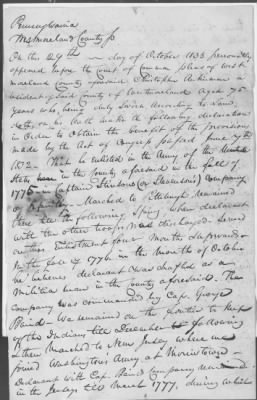 Pennsylvania
Westmoreland County ss
On this 24th day of October 1833 personally
appeared before the court of common pleas of West
moreland county aforesaid, Christopher
resident of said county of Westmoreland aged 75
years who, being duly Sworn According to Law,
doth, on his oath make the following declaration
in Order to Obtain the benefit of the provisions
made by the Act of Congress passed June 7th
1832. That he enlisted in the Army of the United
States in the County aforesaid in the fall of
1775 in Captain Company
Marched to Pittsburgh remained
there till the following Spring, when declarant
with the other troops was discharged served
on this enlistment four Months & upwards
in the fall of 1776 in the month of October
he believes declarant was drafted as a
Militia man in the County aforesaid. The
company was commanded by Cap. George
We remained on the frontier to keep
off the Indians till December following
& then Marched to New Jersey where we
joined Washingtons Army at Morristown
Declarant with Cap. Company remained
in the Jerseys till March 1777, during which